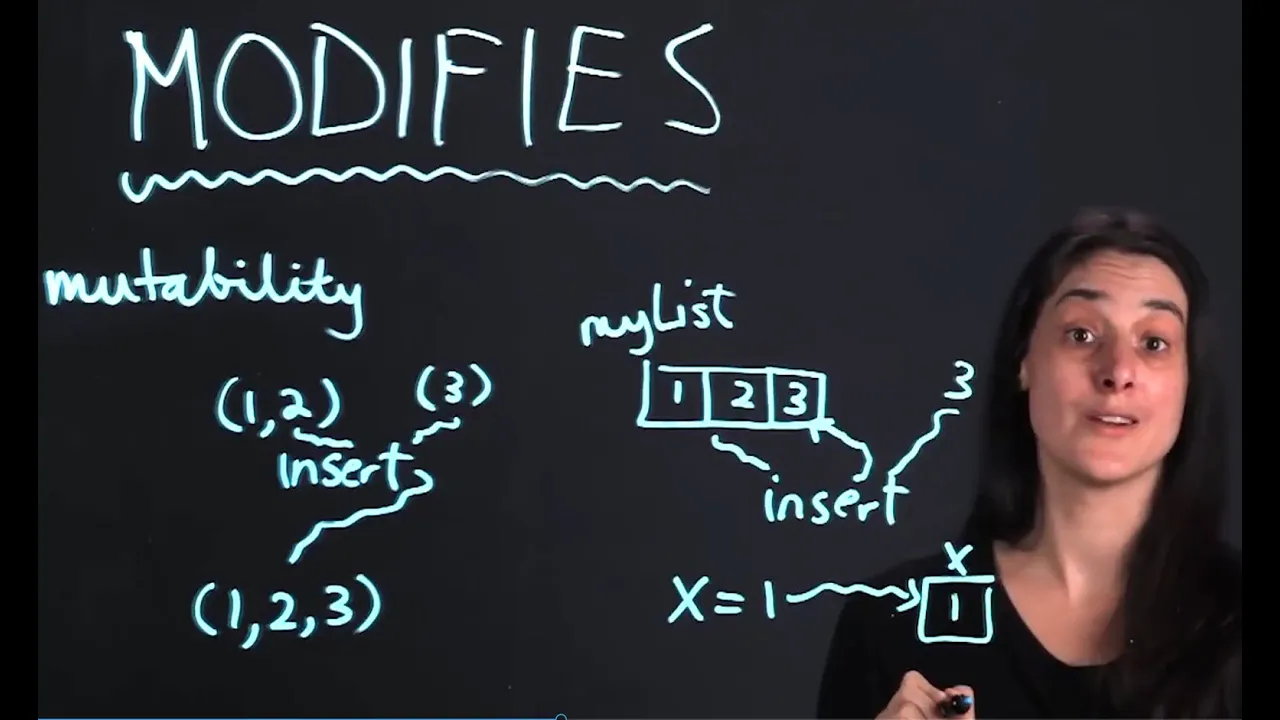 MODIFIES
mutability
(1,2) (3)
insert
(1,2,3)
myList
1 2 3
3
insert
X
X = 1
1